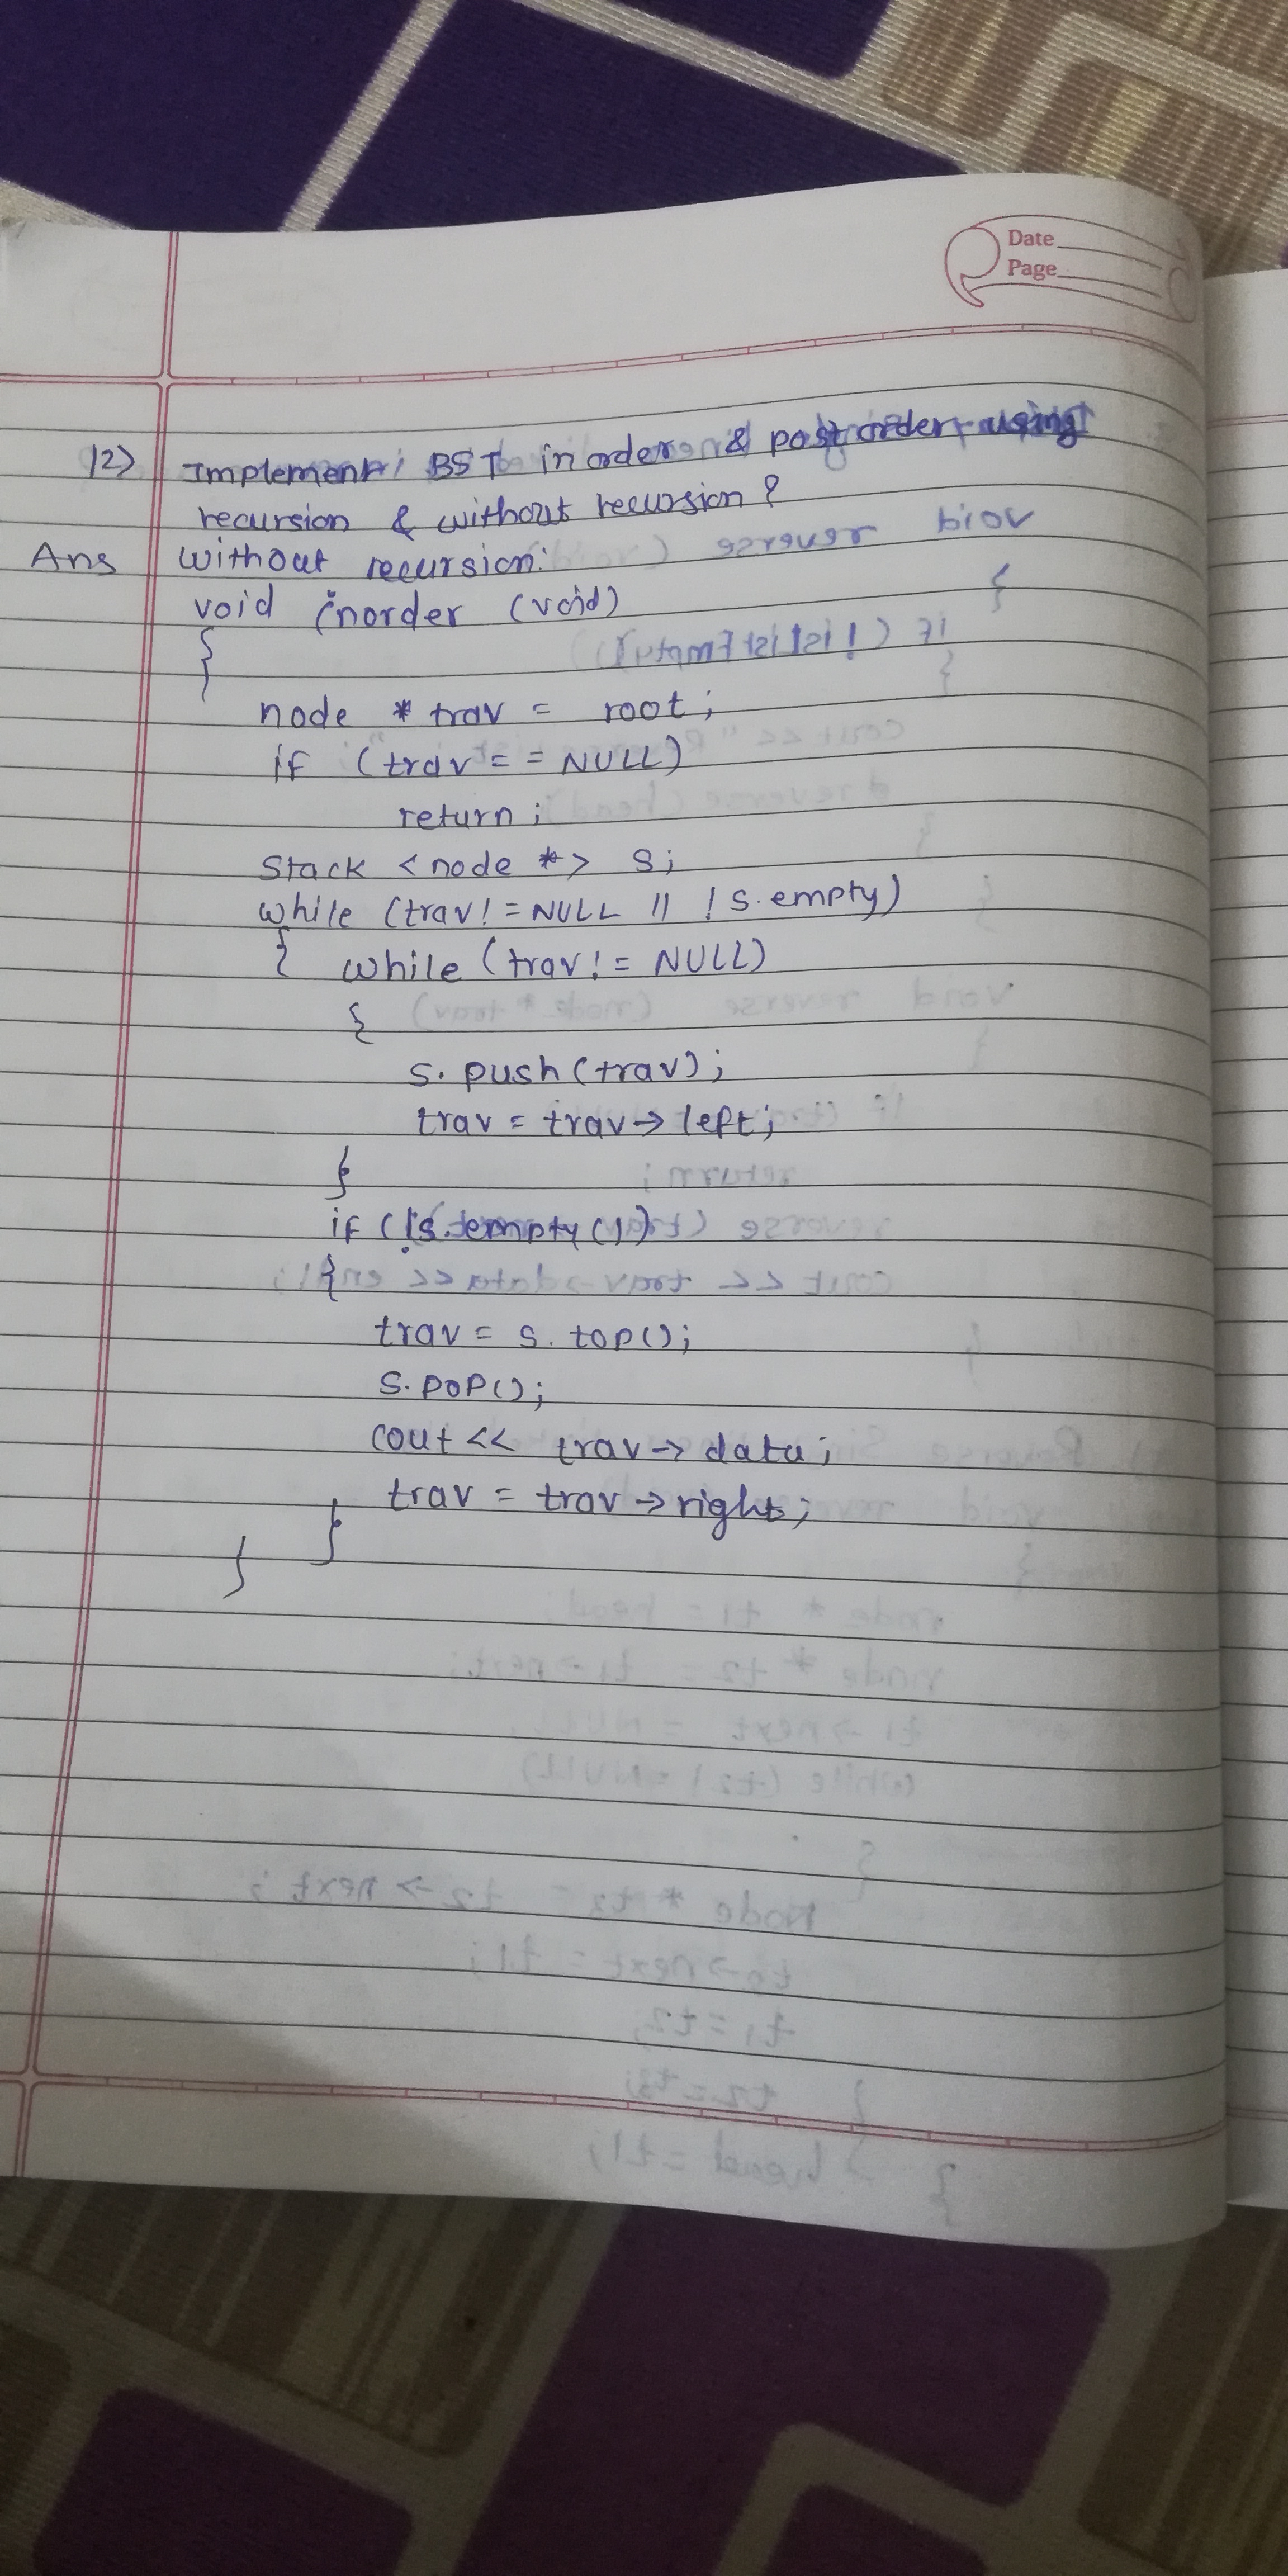 Date
Page
12) Implement BST inorder & postorder using
recursion & without recursion?
Ans without recursion:
void inorder (void)
{
node * trav = root;
if (trav == NULL)
return;
Stack <node *> s;
while (trav != NULL || !s.empty)
{ while (trav != NULL)
{
s.push(trav);
trav = trav->left;
}
if (!s.empty())
{
trav = s.top();
s.pop();
cout << trav->data;
trav = trav->right;
}
}